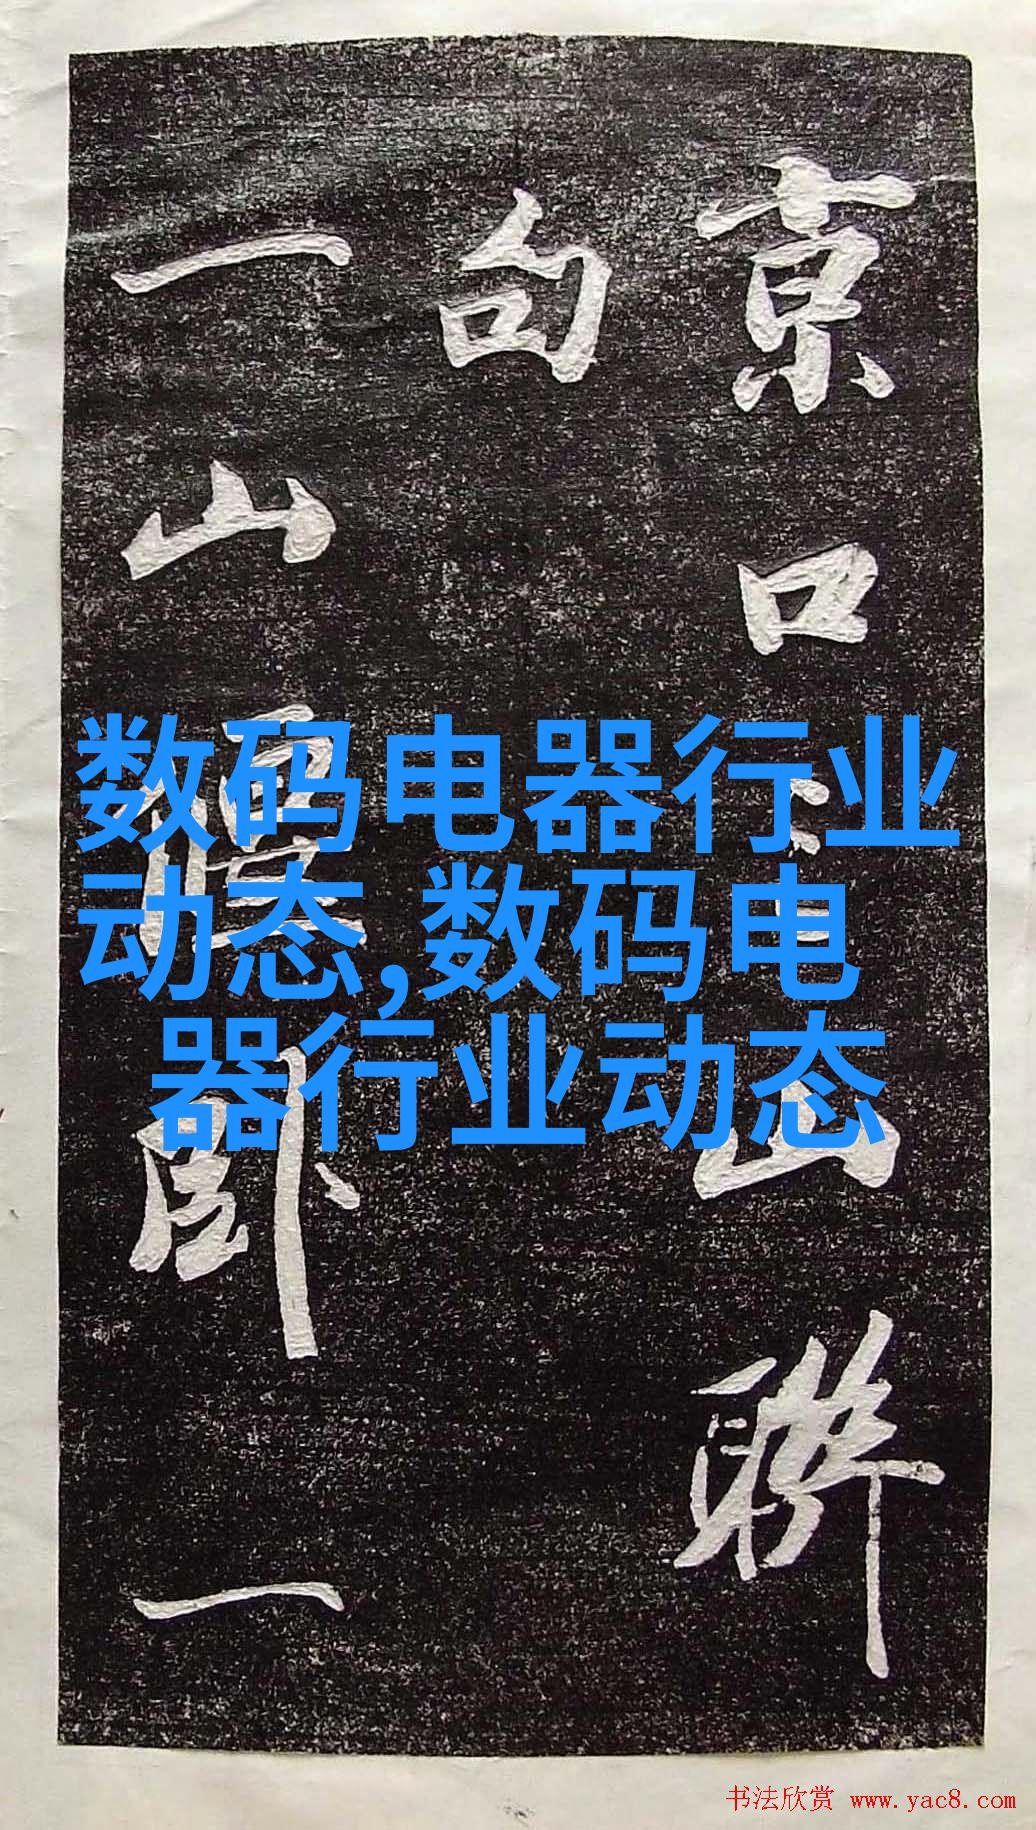 京口山聯
句
一山卧一
数码电器行业
动态,数码电
器行业动态
书法欣赏 www.yac8.com